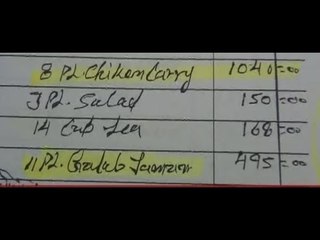 8 PL. Chiken Carry 1040=00
3 PL. Salad 150=00
14 Cup Tea 168=00
11 PL. Gulab Jamun 495=00